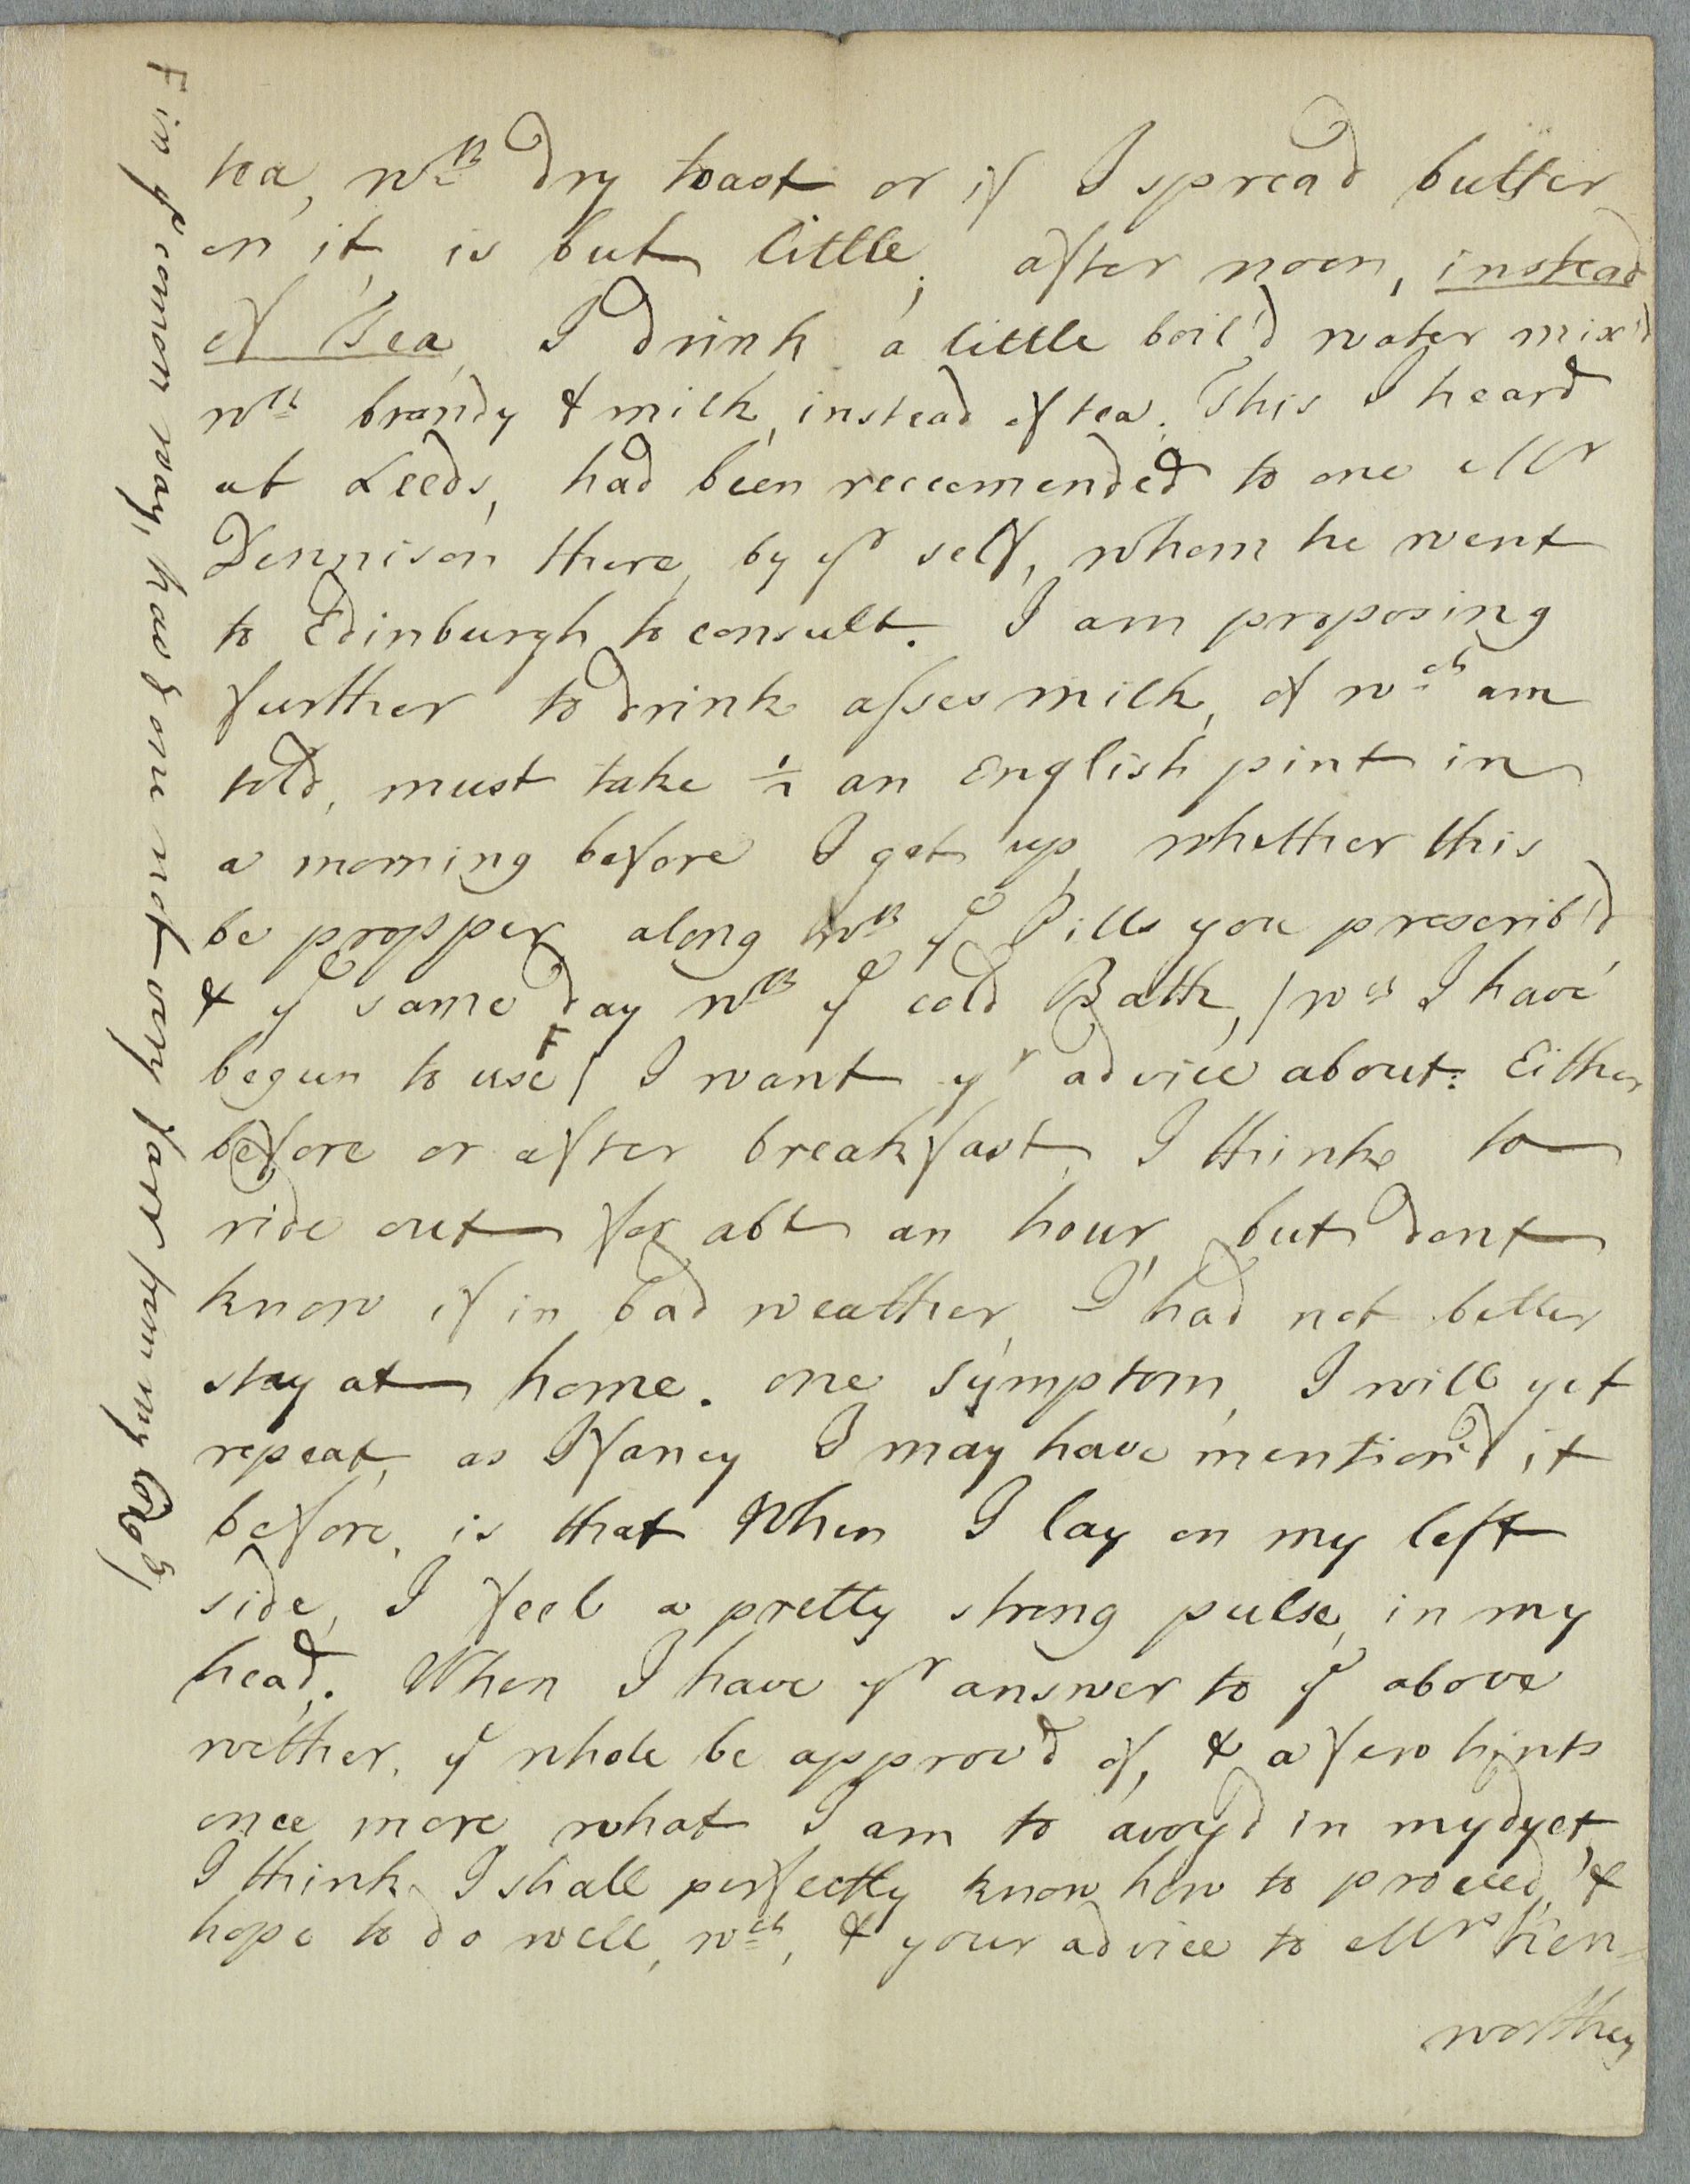 tea, wth dry toast or if I spread butter
on it, is but little; after noon, instead
of Tea, I drink a little boil'd water mix'd
wth brandy & milk, instead of tea. This I heard
at Leeds, had been reccomended to one Mr
Dennison there, by yr self, whom he went
to Edinburgh to consult. I am proposing
further to drink asses milk, of wch am
told, must take ½ an English pint in
a morning before I get up, whether this
be propper along wth ye Pills you prescrib'd
& ye same day wth ye cold Bath, /wch I have
begun to use F/ I want yr advice about: Either
before or after breakfast, I thinke to
ride out for abt an hour, but dont
know if in bad weather, I had not better
stay at home. one symptom, I will yet
repeat, as I fancy I may have mention'd it
before, is that When I lay on my left
side, I feel a pretty strong pulse, in my
head. When I have yr answer to ye above
wether, ye whole be approv'd of, & a few hints
once more what I am to avoy'd in my dyet,
I think I shall perfectly know how to proceed, &
hope to do well, wch, & your advice to Mrs Ken=
worthey
F in ye comon way, have one not very farr from my